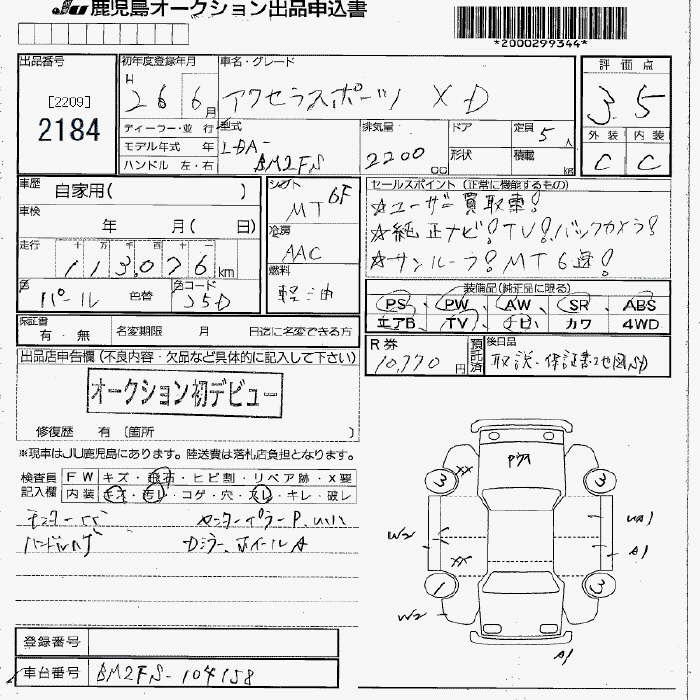 JU 鹿児島オークション出品申込書
*2000299344*
出品番号
[2209]
2184
初年度登録年月
H 26 6月
車名・グレード
アクセラスポーツ XD
評価点
3.5
外装 内装
C C
ディーラー・並行
モデル年式 年
ハンドル 左・右
型式
LDA-
BM2FS
排気量
2200 cc
ドア
形状
定員 5人
積載 kg
車歴 自家用( )
車検
年 月( 日)
走行 十 万 千 百 十 一
113,076 km
色 パール 色替
色コード
25D
シフト
MT 6F
冷房
AAC
燃料
軽油
セールスポイント(正常に機能するもの)
☆ユーザー買取車!
☆純正ナビ!TV!バックカメラ!
☆サンルーフ!MT6速!
装備品(純正品に限る)
PS、PW、AW、SR、ABS
エアB TV ナビ カワ 4WD
保証書
有・無
名変期限 月 日迄に名変できる方
R券
10,770円
預託済
後日品
取説・保証書・地図SD
出品店申告欄(不良内容・欠品など具体的に記入して下さい)
オークション初デビュー
修復歴 有〔箇所 〕
※現車はJU鹿児島にあります。陸送費は落札店負担となります。
検査員記入欄
FW キズ・飛石・ヒビ割・リペア跡・X要
内装 キズ・汚レ・コゲ・穴・スレ・キレ・破レ
センターピラーP.
ハンドルハゲ
ドアミラー、ホイールA
3
3
1
3
XX
XX
W2
W2
A1
A1
登録番号
車台番号 BM2FS-104158